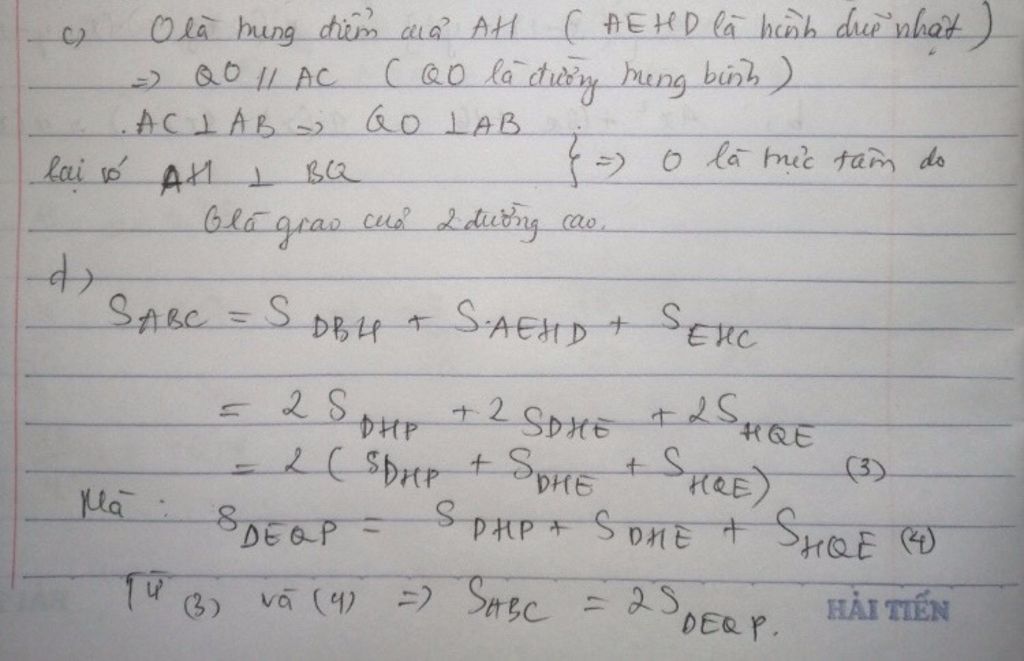 c) O là trung điểm của AH ( AEHD là hình chữ nhật )
=> QO // AC ( QO là đường trung bình )
. AC ⊥ AB => QO ⊥ AB
lại có AH ⊥ BQ } => O là trực tâm do
O là giao của 2 đường cao.
d)
S ABC = S DBH + S AEHD + S EHC
= 2 S DHP + 2 S DHE + 2 S HQE
= 2 ( S DHP + S DHE + S HQE ) (3)
Mà : S DEQP = S DHP + S DHE + S HQE (4)
Từ (3) và (4) => S ABC = 2 S DEQP.
HẢI TIẾN